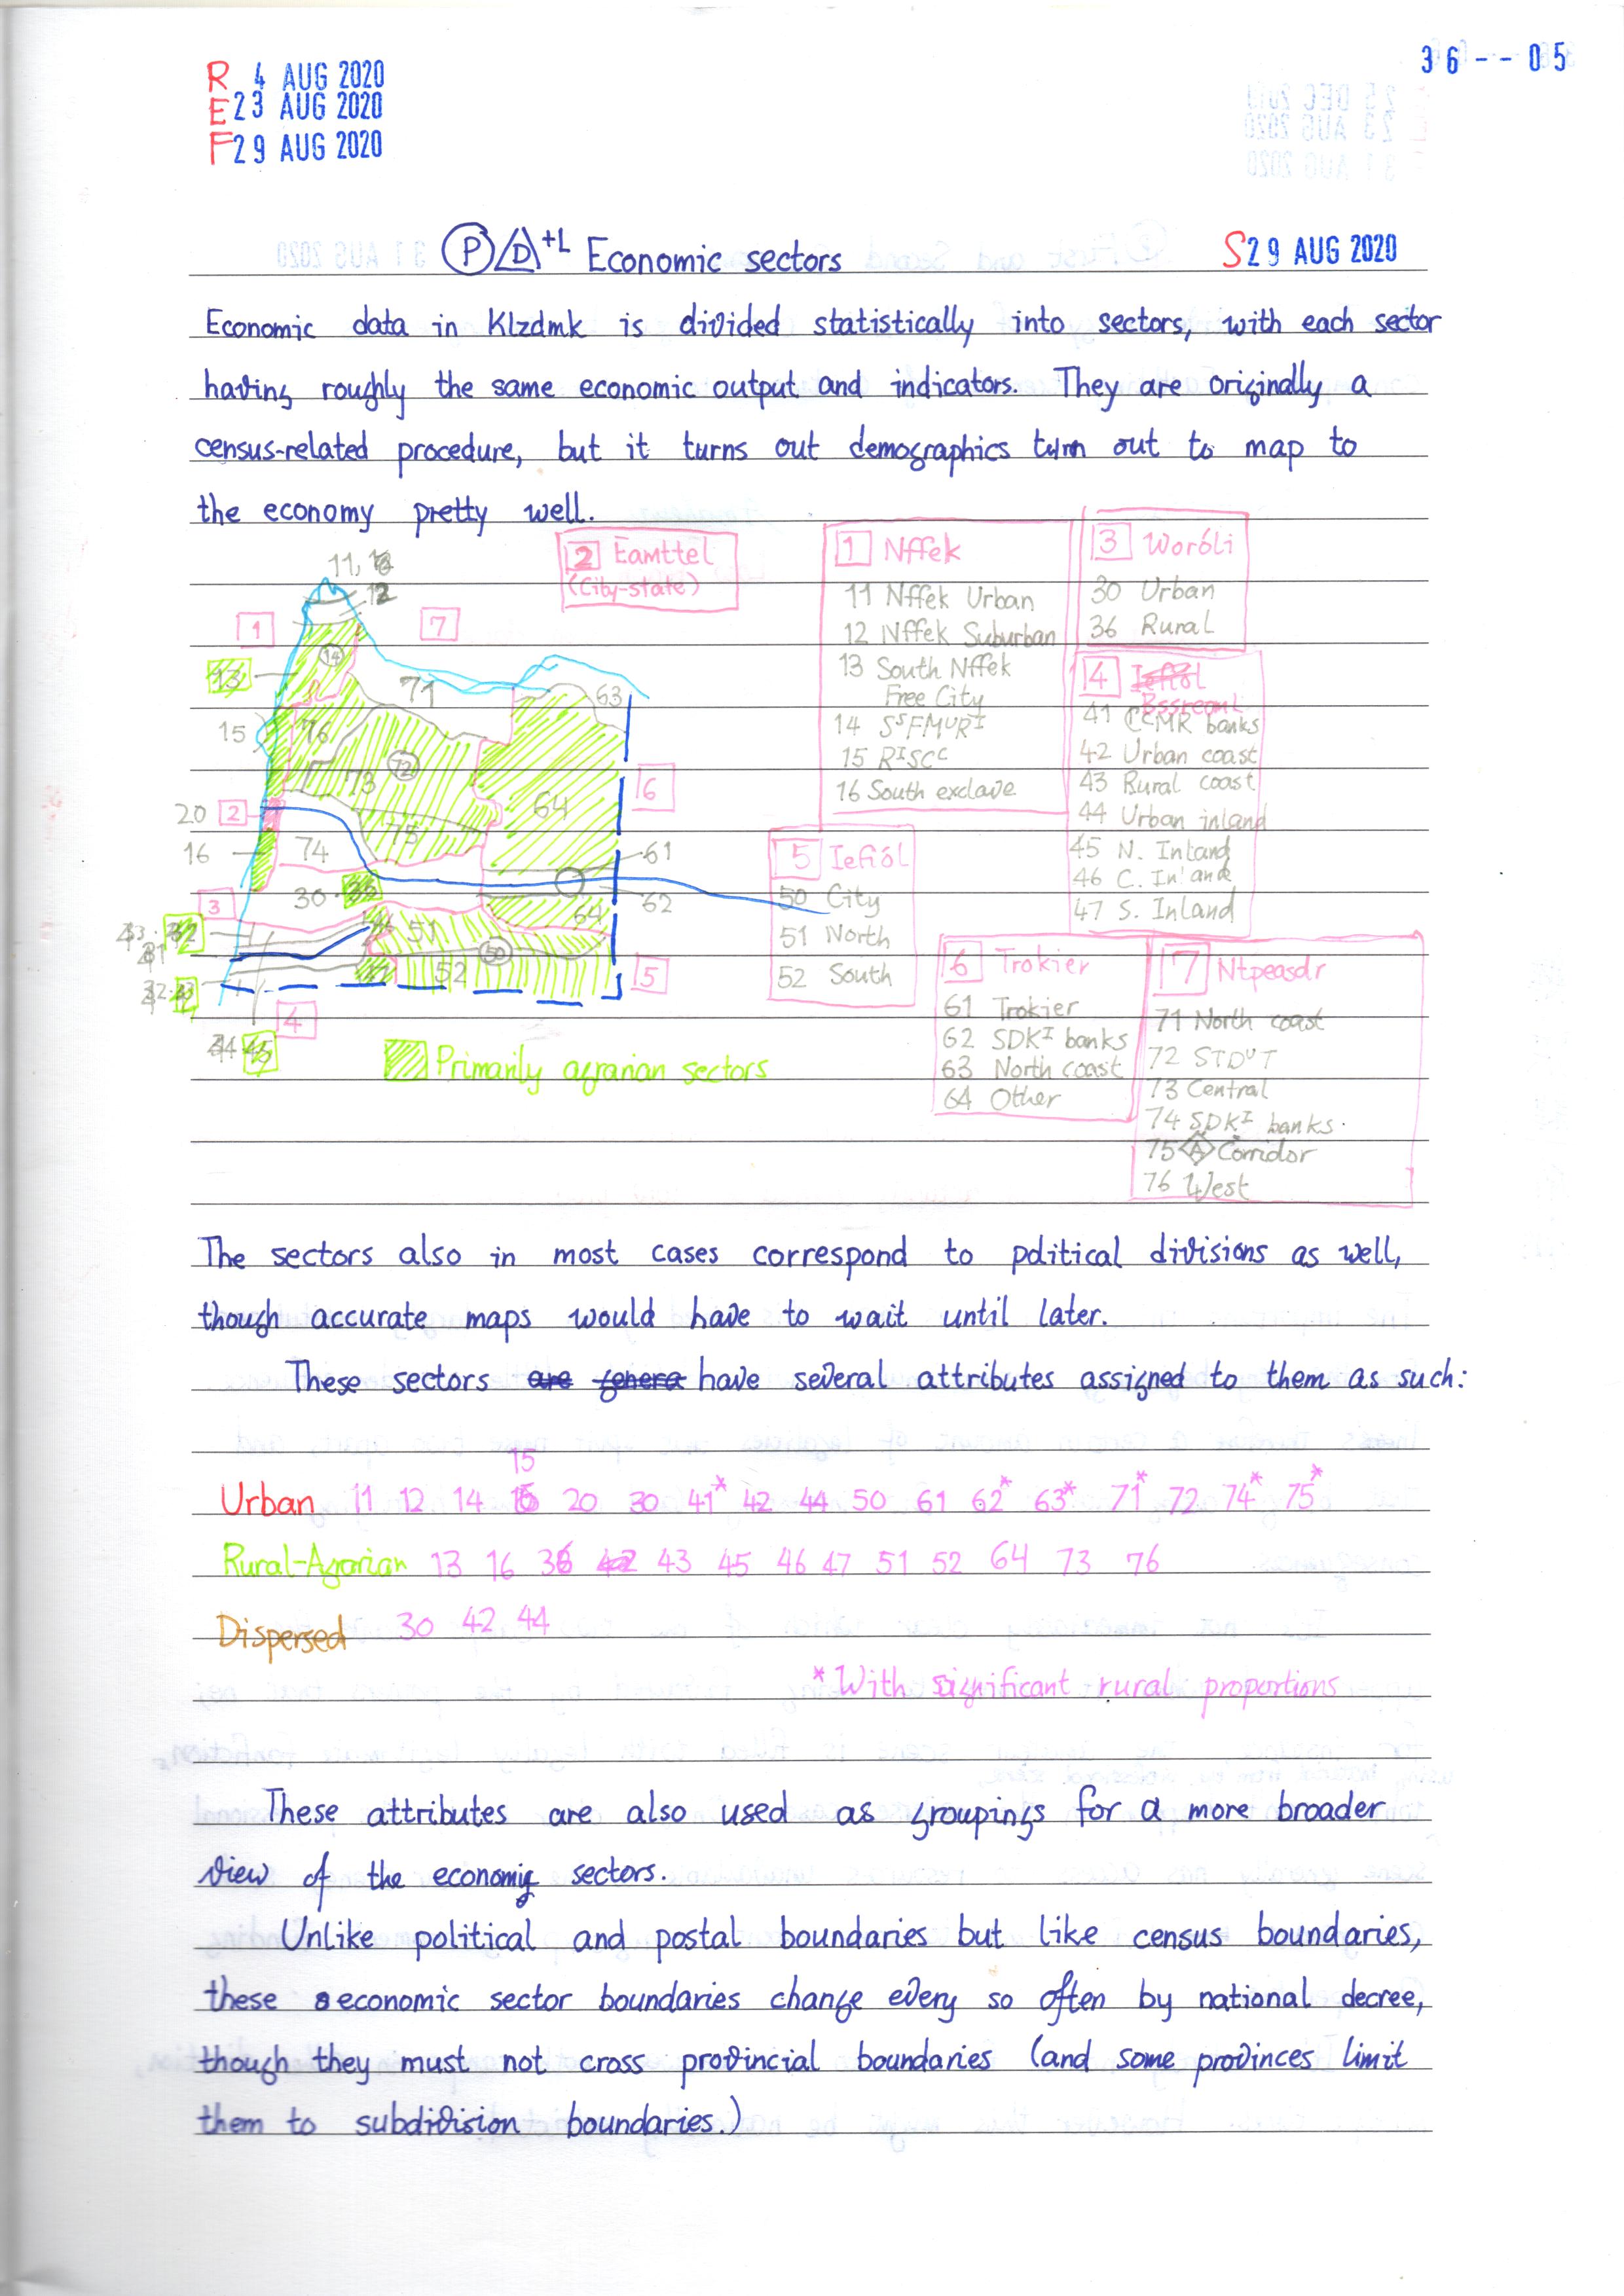 36--05
R 4 AUG 2020
E 23 AUG 2020
F 29 AUG 2020
P D +L Economic sectors
S 29 AUG 2020
Economic data in Klzdmk is divided statistically into sectors, with each sector
having roughly the same economic output and indicators. They are originally a
census-related procedure, but it turns out demographics turn out to map to
the economy pretty well.
11,
12
1
7
14
13
71
63
15
76
72
73
6
64
20 2
75
16
74
61
30 36
62
3
64
51
50
52
5
4
Primarily agrarian sectors
2 Eamttel
(City-state)
1 Nffek
11 Nffek Urban
12 Nffek Suburban
13 South Nffek
Free City
14 SSFMURI
15 RISCC
16 South exclave
3 Woróli
30 Urban
36 Rural
4
41 CCMR banks
42 Urban coast
43 Rural coast
44 Urban inland
45 N. Inland
46 C. Inland
47 S. Inland
5
50 City
51 North
52 South
6 Trokier
61 Trokier
62 SDKI banks
63 North coast
64 Other
7 Ntpeasdr
71 North coast
72 STDUT
73 Central
74 SDKI banks
75 A Corridor
76 West
The sectors also in most cases correspond to political divisions as well,
though accurate maps would have to wait until later.
These sectors are genera have several attributes assigned to them as such:
15
Urban 11 12 14 20 30 41* 42 44 50 61 62* 63* 71* 72 74* 75*
Rural-Agarian 13 16 36 42 43 45 46 47 51 52 64 73 76
Dispersed 30 42 44
*With significant rural proportions
These attributes are also used as groupings for a more broader
view of the economic sectors.
Unlike political and postal boundaries but like census boundaries,
these economic sector boundaries change every so often by national decree,
though they must not cross provincial boundaries (and some provinces limit
them to subdivision boundaries.)